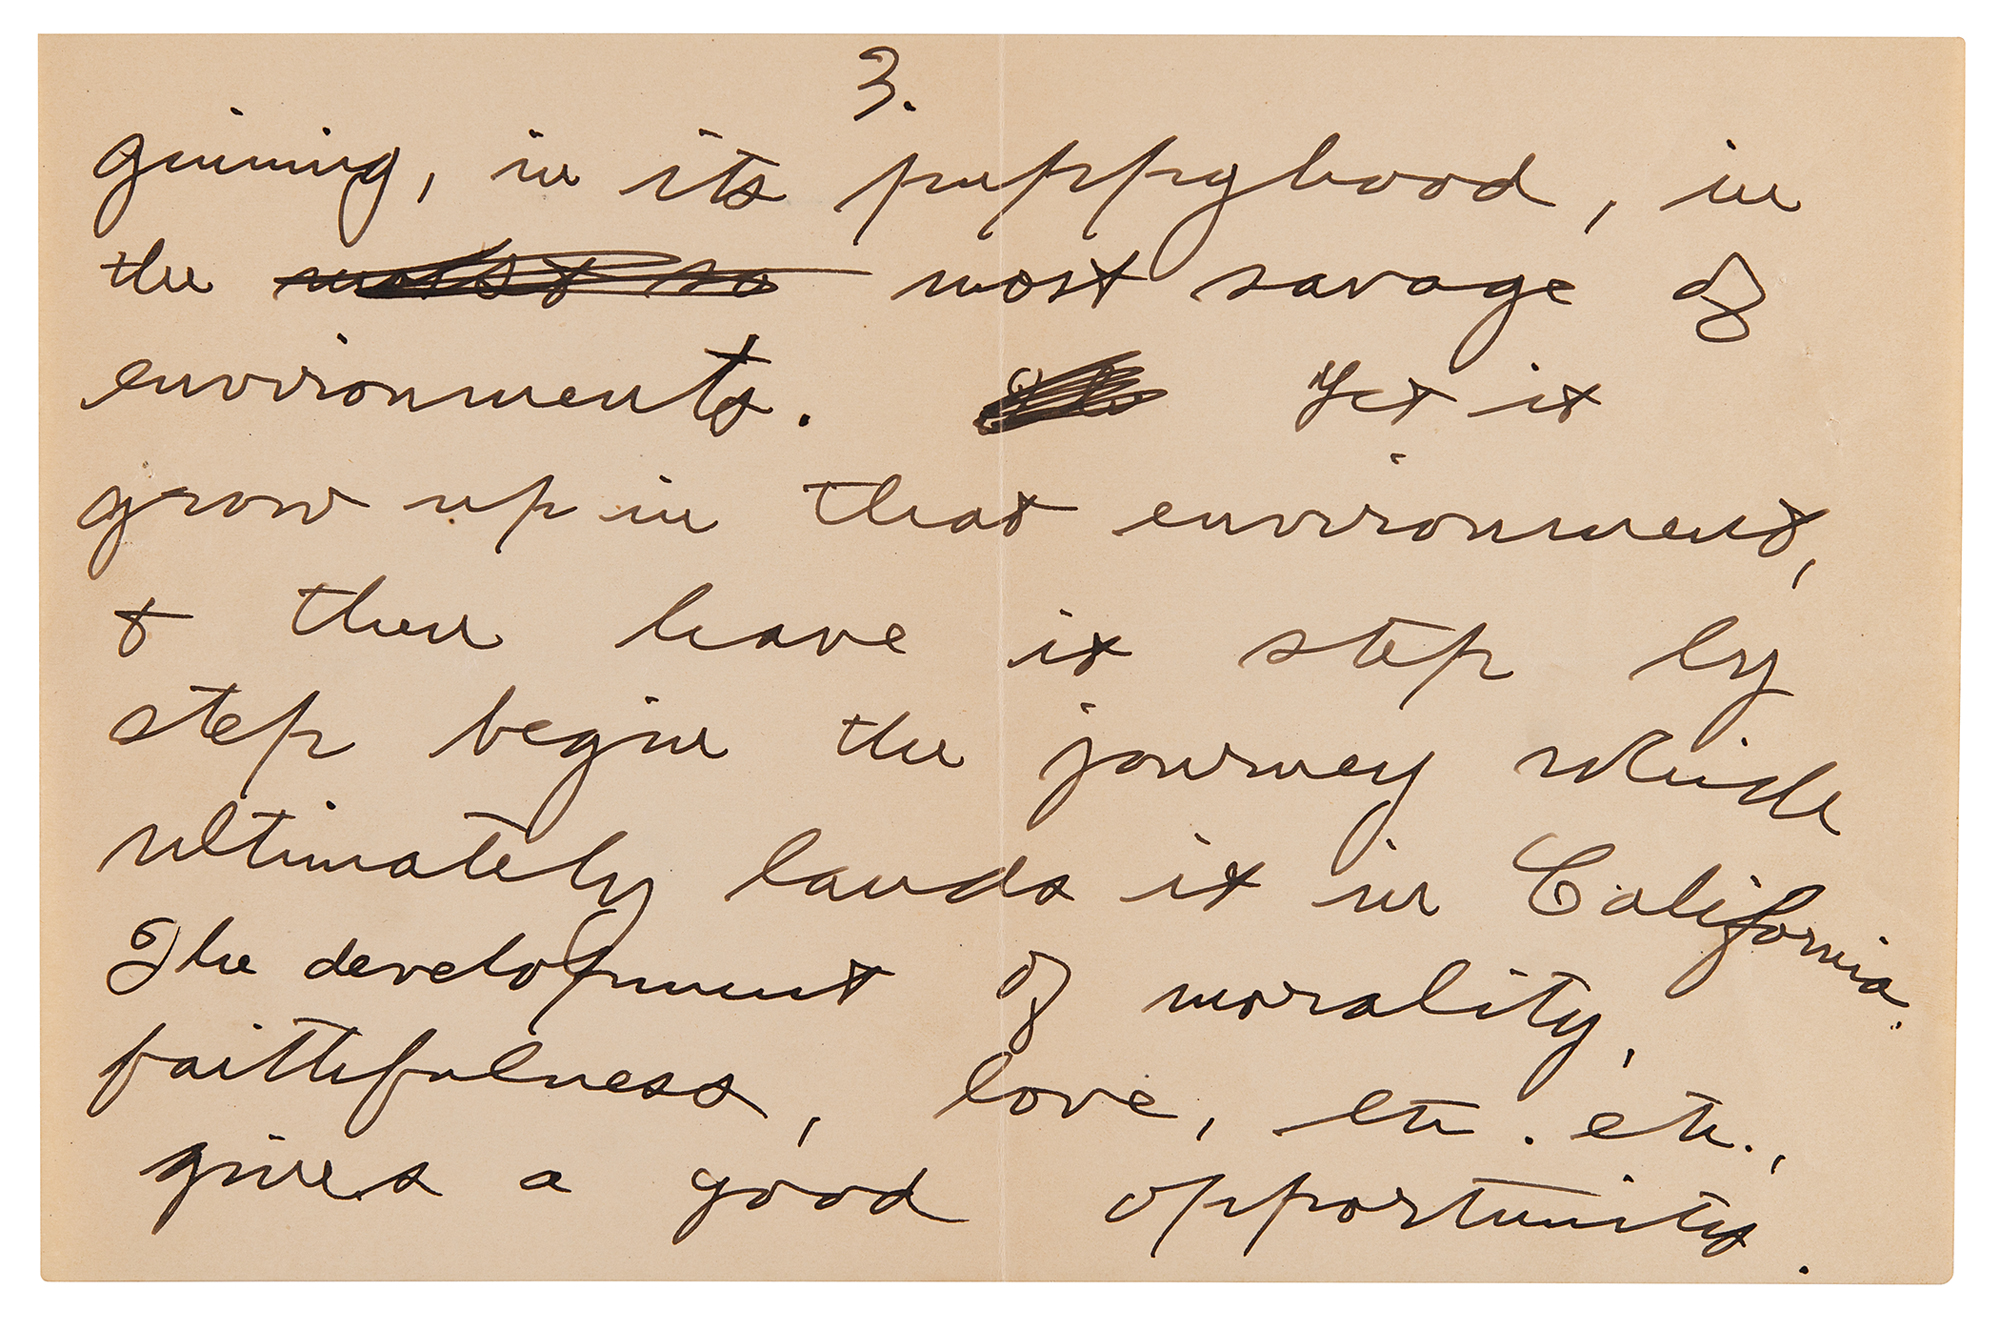 3.
ginning, in its puppyhood, in
the most so most savage of
environments. Yet it
grow up in that environment,
& then have it step by
step begin the journey which
ultimately lands it in California.
The development of morality,
faithfulness, love, etc. etc.,
gives a good opportunity.